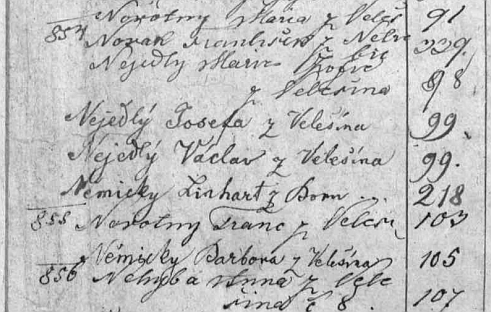 Novotny Maria z Veleš 91
854 Novak Frantisek z Netře 229.
Nejedly Marie
z Velesina 98
Nejedlý Josefa z Velešína 99.
Nejedlý Václav z Velešína 99.
Němicky Linhart z Born 218
855 Novotny Franc z Velesi 103
Němicky Barbora z Velešína 105
856 Nehyba Anna z Vele
šina č 8. 107